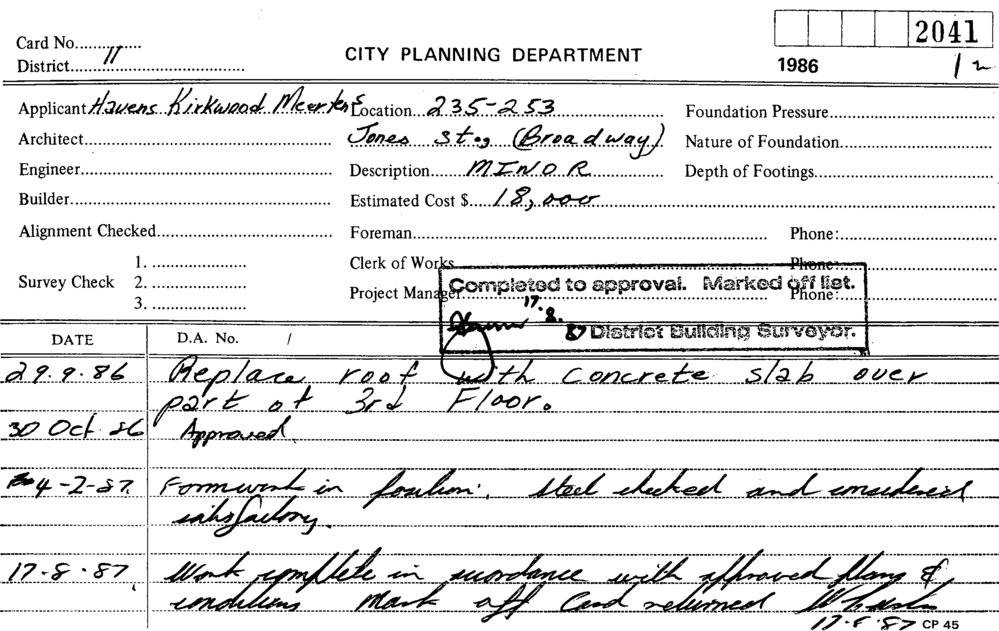 2041
Card No.
District 11
CITY PLANNING DEPARTMENT
1986
12
Applicant Havens Kirkwood Meertens
Location 235-253
Foundation Pressure
Architect
Jones St., (Broadway)
Nature of Foundation
Engineer
Description MINOR
Depth of Footings
Builder
Estimated Cost $ 18,000
Alignment Checked
Foreman
Phone:
Survey Check
1.
2.
3.
Clerk of Works
Phone:
Project Manager
Phone:
Completed to approval. Marked off list.
17.8.87 District Building Surveyor.
DATE D.A. No. /
29.9.86 Replace roof with concrete slab over
part of 3rd Floor.
30 Oct 86 Approved
4-2-87. Formwork in position. Steel checked and considered
satisfactory.
17-8-87. Work complete in accordance with approved plans &
conditions Mark off Card returned
17-8-87 CP 45